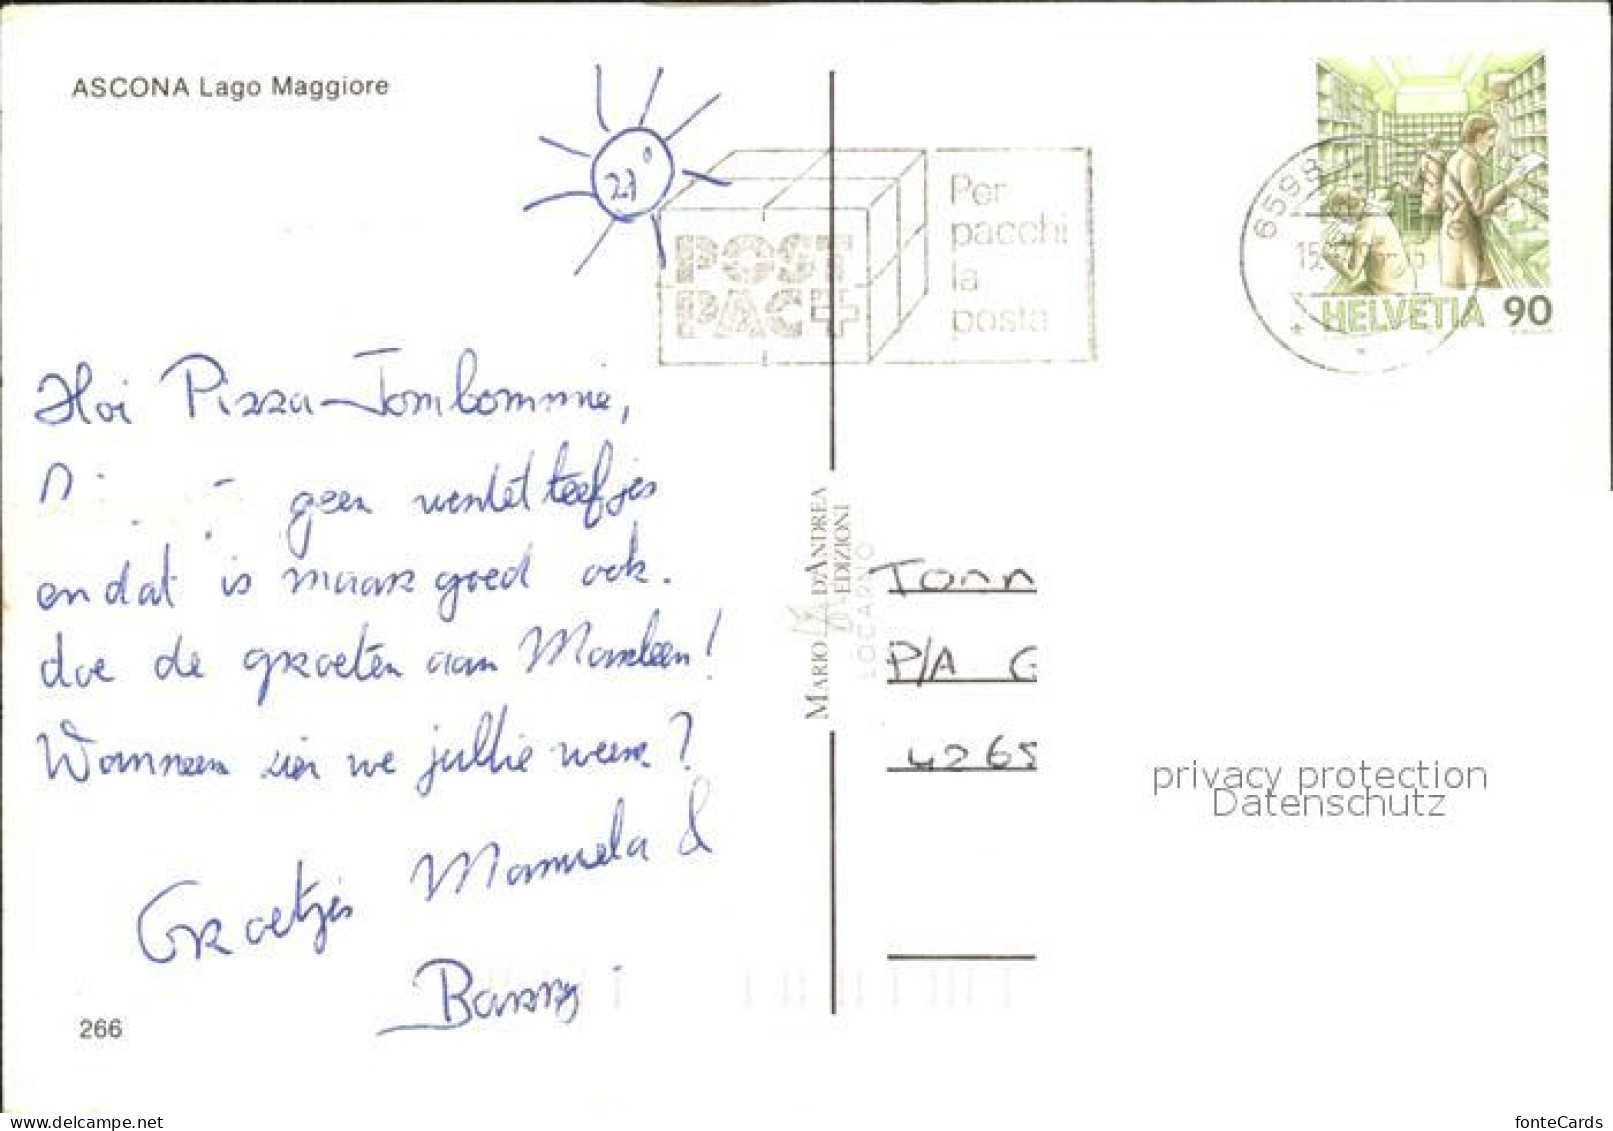 ASCONA Lago Maggiore
27°
POST
PAC
Per
pacchi
la
posta
6598
15.
HELVETIA 90
Hoi Pizza-Jombommie,
geen wentelteefjes
en dat is maar goed ook.
doe de groeten aan Marleen!
Wanneer zien we jullie weer?
Groetjes Manuela &
Barry
MARIO D'ANDREA
EDIZIONI
LOCARNO
Tonn
P/A G
4265
privacy protection
Datenschutz
266
www.delcampe.net
fonteCards